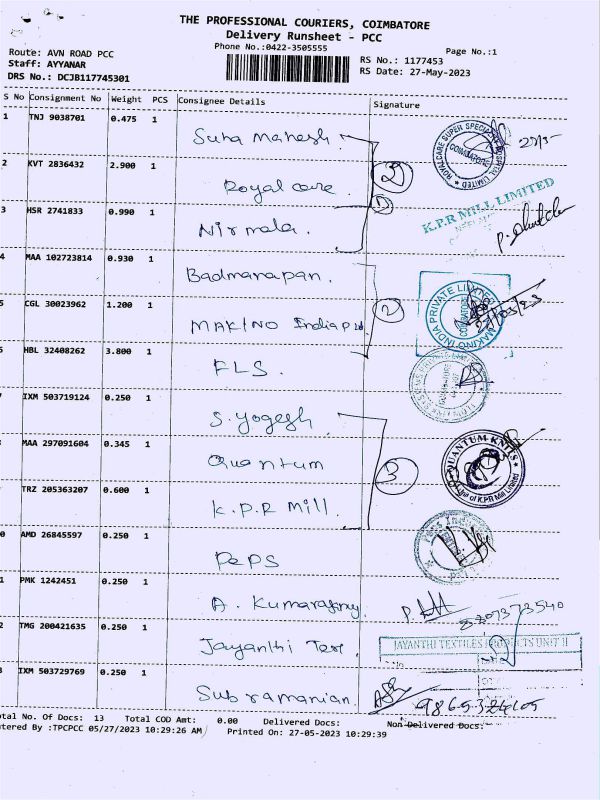 THE PROFESSIONAL COURIERS, COIMBATORE
Delivery Runsheet - PCC
Phone No.:0422-3505555
Page No.:1
Route: AVN ROAD PCC
Staff: AYYANAR
DRS No.: DCJB117745301
RS No.: 1177453
RS Date: 27-May-2023
S No Consignment No Weight PCS Consignee Details Signature
1 TNJ 9038701 0.475 1 Suha Mahesh.
ROYALCARE SUPER COIMBATORE LIMITED
2 KVT 2836432 2.900 1 Royal care.
2
1
K.P.R MILL LIMITED
3 HSR 2741833 0.990 1 Nirmala.
4 MAA 102723814 0.930 1 Badmanapan.
5 CGL 30023962 1.200 1 MAKINO India P
2
MAKINO INDIA PRIVATE LIMITED
6 HBL 32408262 3.800 1 FLS.
IXM 503719124 0.250 1 S. Yogesh
MAA 297091604 0.345 1 Quantum
3
QUANTUM KNITS
of K.P.R Mill Limited
TRZ 205363207 0.600 1 K.P.R Mill.
0 AMD 26845597 0.250 1 PePS
1 PMK 1242451 0.250 1 A.
2 TMG 200421635 0.250 1 Jayanthi Text.
JAYANTHI TEXTILES PRODUCTS UNIT II
3 IXM 503729769 0.250 1 Subramanian.
otal No. Of Docs: 13 Total COD Amt: 0.00 Delivered Docs: Non Delivered Docs:
ntered By :TPCPCC 05/27/2023 10:29:26 AM Printed On: 27-05-2023 10:29:39